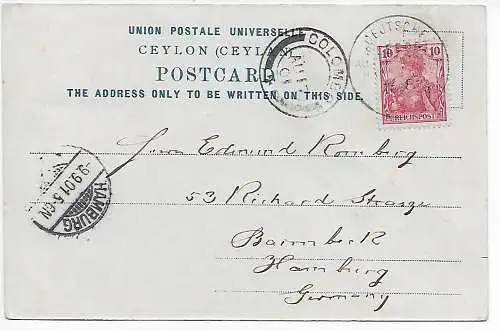 UNION POSTALE UNIVERSELLE
CEYLON (CEYL
POSTCARD
THE ADDRESS ONLY TO BE WRITTEN ON THIS SIDE.
COLOMBO
DEUTSCHE
10 10
REICHSPOST
HAMBURG
-9.9.01.5-6N
Herrn Edmund Romberg
53 Richard Strasze
Barmbeck
Hamburg
Germany